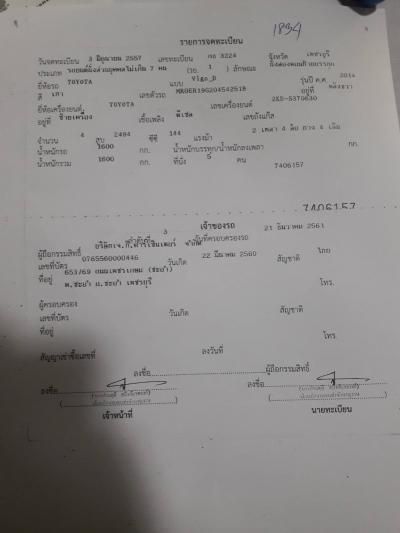 1894
รายการจดทะเบียน
วันจดทะเบียน 3 มิถุนายน 2557 เลขทะเบียน กอ 3224 จังหวัด เพชรบุรี
ประเภท รถยนต์นั่งส่วนบุคคลไม่เกิน 7 คน (รย. 1 ) ลักษณะ
ยี่ห้อรถ TOYOTA แบบ Vigo_D รุ่นปี ค.ศ. 2014
สี เทา เลขตัวรถ MR0ER19G204542518 อยู่ที่
ยี่ห้อเครื่องยนต์ TOYOTA เลขเครื่องยนต์ 2KD-S370630
อยู่ที่ ซ้ายเครื่อง เชื้อเพลิง ดีเซล เลขถังแก๊ส
จำนวน 4 สูบ 2494 ซีซี 144 แรงม้า 2 เพลา 4 ล้อ ยาง 4 เส้น
น้ำหนักรถ 1600 กก. น้ำหนักบรรทุก/น้ำหนักลงเพลา กก.
น้ำหนักรวม 1600 กก. ที่นั่ง 5 คน
7406157
7406157
เจ้าของรถ
ลำดับที่ 3 วันที่ครอบครองรถ 21 ธันวาคม 2561
ผู้ถือกรรมสิทธิ์
เลขที่บัตร 0765560000446 วันเกิด 22 มีนาคม 2560 สัญชาติ ไทย
ที่อยู่ 653/69 ถนนเพชรเกษม (ชะอำ)
ต.ชะอำ อ.ชะอำ เพชรบุรี โทร.
ผู้ครอบครอง
เลขที่บัตร วันเกิด สัญชาติ
ที่อยู่ โทร.
สัญญาเช่าซื้อเลขที่ ลงวันที่
ลงชื่อ ผู้ถือกรรมสิทธิ์
ลงชื่อ ลงชื่อ
เจ้าหน้าที่ นายทะเบียน